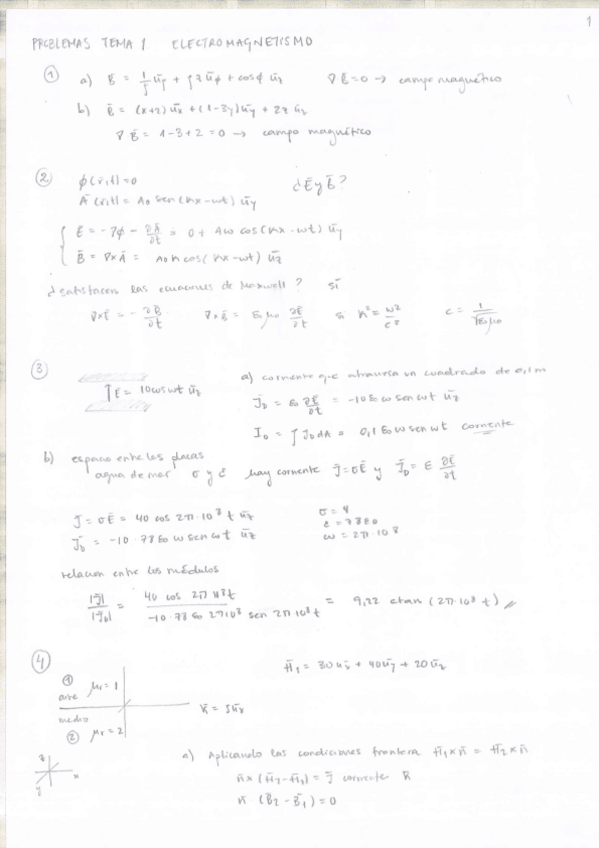 1
PROBLEMAS TEMA 1 ELECTROMAGNETISMO
① a) B̄ = 1/ρ ūρ + ρz ūφ + cosφ ūz ∇B̄=0 → campo magnético
b) B̄ = (x+2) ūx + (1-3y) ūy + 2z ūz
∇B̄ = 1-3+2 = 0 → campo magnético
② φ(r,t)=0 ¿Ē y B̄?
Ā(r,t) = A0 sen(kx-wt) ūy
Ē = -∇φ - ∂Ā/∂t = 0 + Aw cos(kx-wt) ūy
B̄ = ∇xĀ = A0 k cos(kx-wt) ūz
¿satisfacen las ecuaciones de Maxwell? sí
∇xĒ = - ∂B̄/∂t ∇xB̄ = ε0μ0 ∂Ē/∂t si k² = w²/c² c = 1/√ε0μ0
③ Ē = 10 cos wt ūz a) corriente que atraviesa un cuadrado de 0,1m
J̄D = ε0 ∂Ē/∂t = -10 ε0 w sen wt ūz
ID = ∫ JD dA = 0,1 ε0 w sen wt corriente
b) espacio entre las placas
agua de mar σ y ε hay corriente J̄=σĒ y J̄D = ε ∂Ē/∂t
J̄ = σĒ = 40 cos 2π·10⁸ t ūz σ = 4
J̄D = -10·78 ε0 w sen wt ūz ε = 78ε0
w = 2π·10⁸
relacion entre los módulos
|J̄|/|J̄D| = 40 cos 2π 10⁸t / -10·78 ε0 2π10⁸ sen 2π 10⁸t = 9,22 ctan (2π·10⁸ t)
④ H̄1 = 30ūx + 40ūy + 20ūz
① aire μr = 1
K̄ = 5ūx
medio
② μr = 2
z
y x
a) Aplicando las condiciones frontera H̄1 x n̄ = H̄2 x n̄
n̄ x (H̄2 - H̄1) = J̄ corriente K
n̄ · (B̄2 - B̄1) = 0